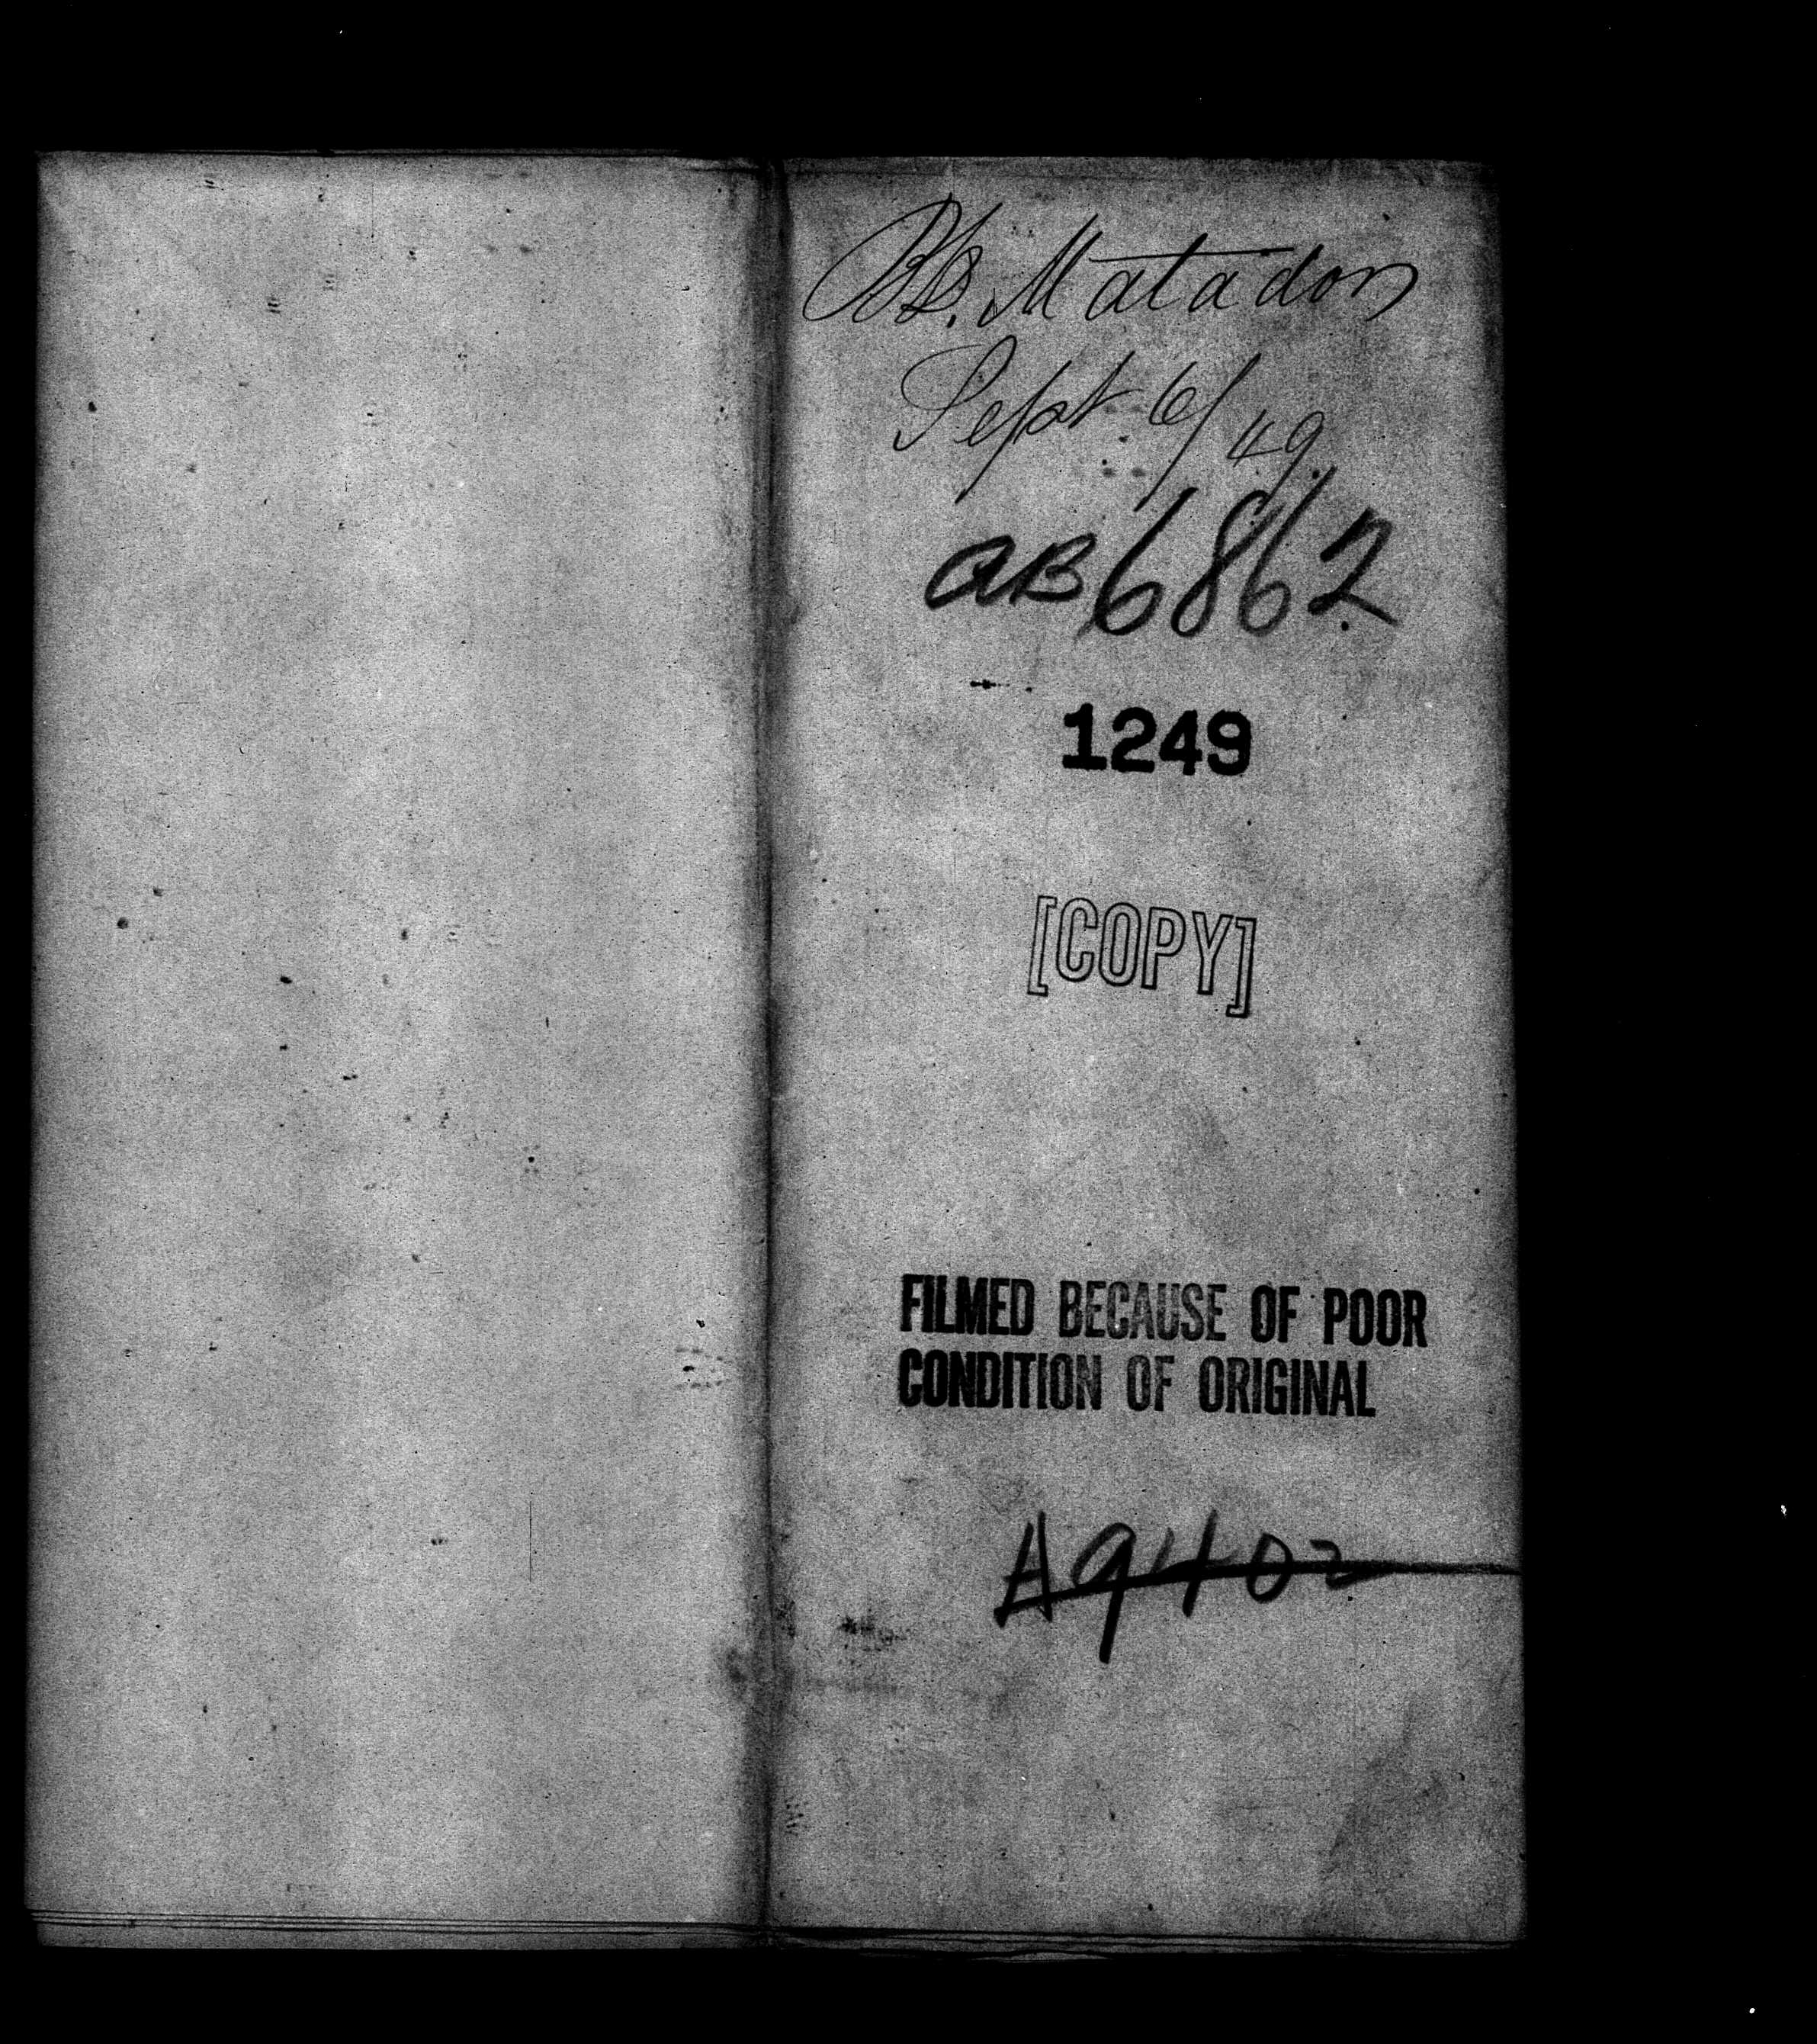 Bk. Matador
Sept 6/49.
AB6862
1249
[COPY]
FILMED BECAUSE OF POOR
CONDITION OF ORIGINAL
A9402